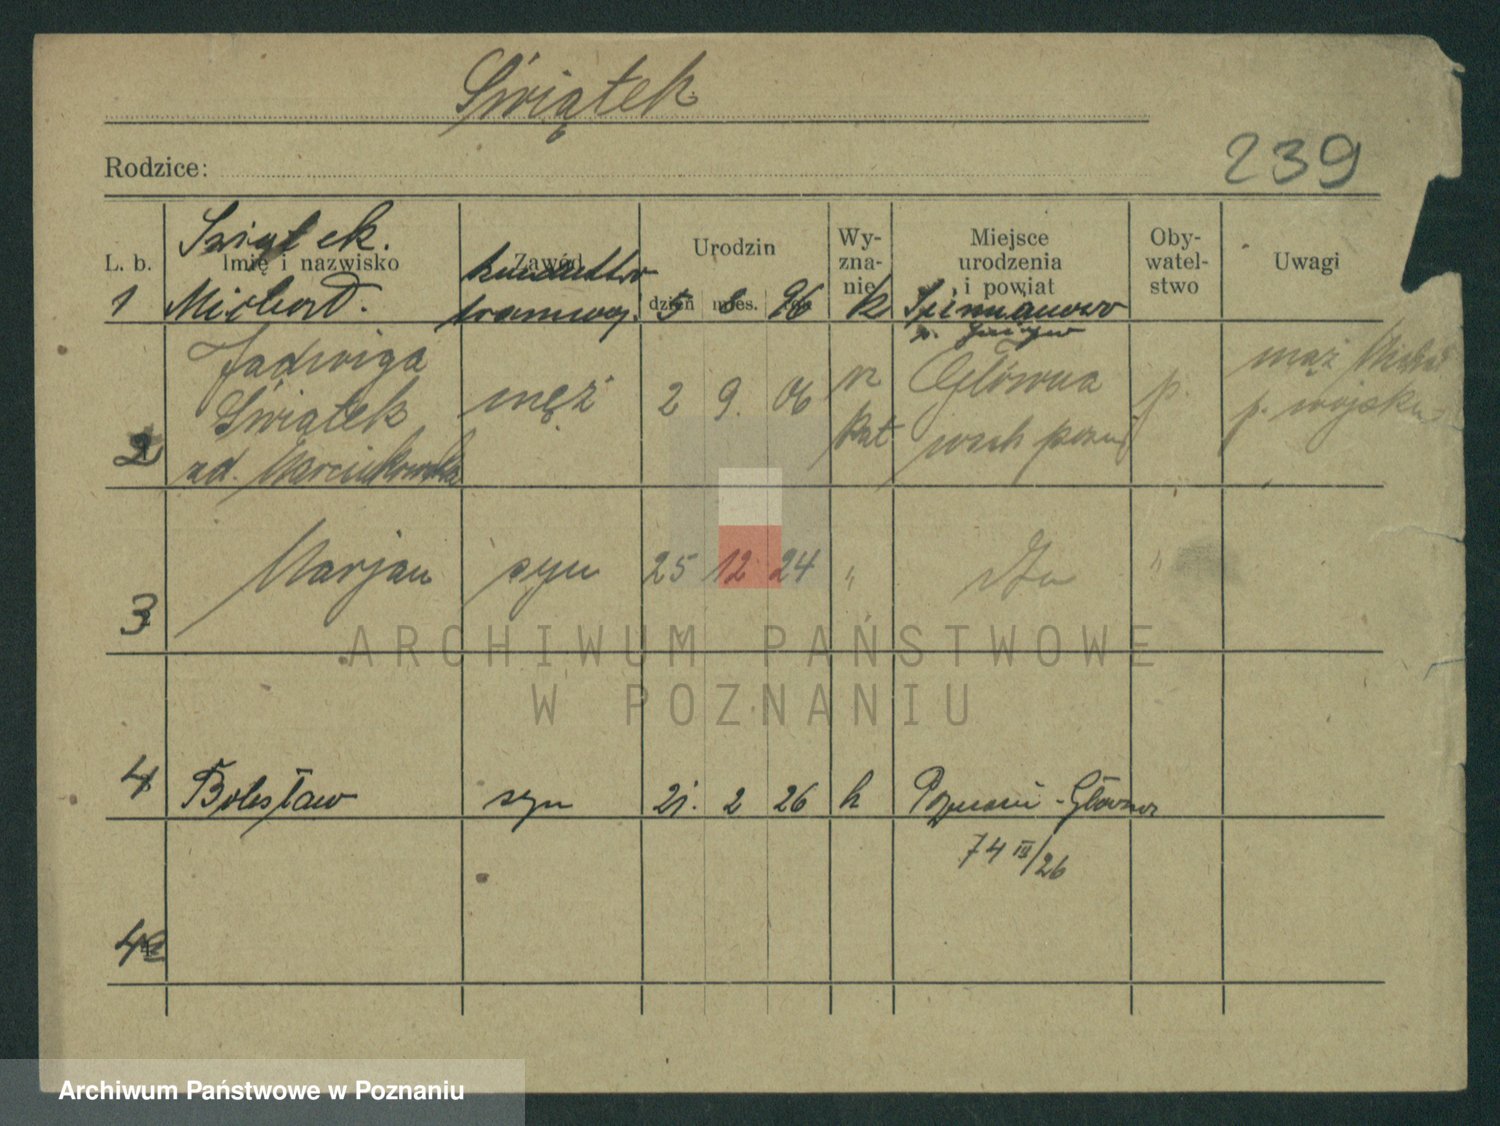 Świątek
Rodzice:
239
L. b.
Imię i nazwisko
Zawód
Urodzin
dzień mies. rok
Wy-
zna-
nie
Miejsce
urodzenia
i powiat
Oby-
watel-
stwo
Uwagi
Świątek.
1 Michał. konduktor tramwaj. 5 8 96 k
Jadwiga
Świątek
2 męż 2 9. 06 rz kat Główna p. mąż Michał
p. wojsku
ud. Marcinkowska
3 Marjan syn 25 12 24 " dto "
4 Bolesław syn 21. 2 26 k Poznań-Główna
74 III/26
4
ARCHIWUM PAŃSTWOWE
W POZNANIU
Archiwum Państwowe w Poznaniu